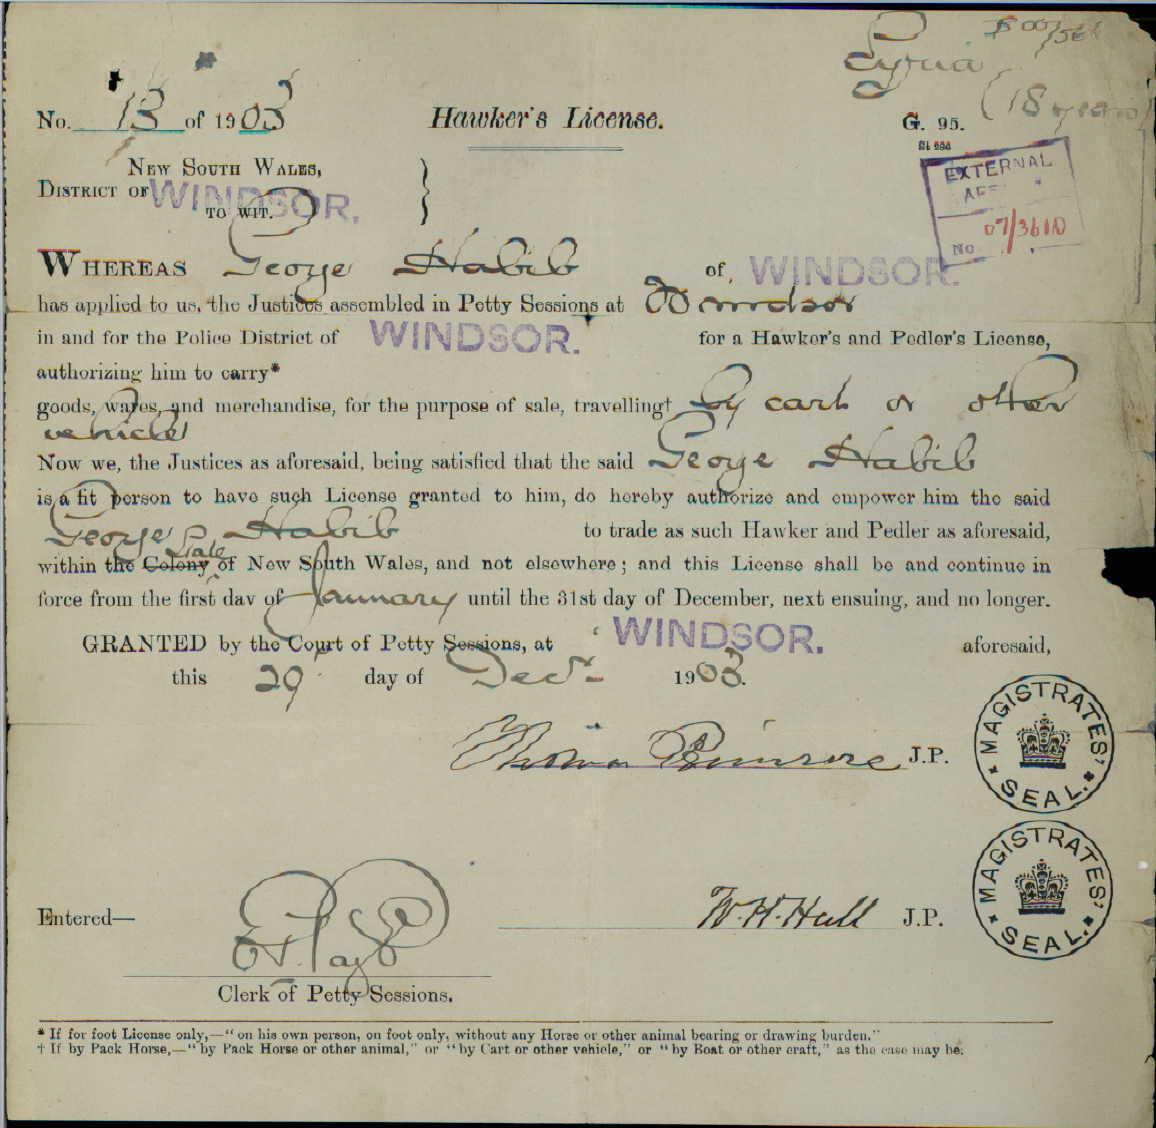 Syria
(18 years)
No. 13 of 1903 Hawker's License. G. 95.
New South Wales,
District of WINDSOR.
to wit.
EXTERNAL
AFF
07/3610
No
Whereas George Habib of WINDSOR.
has applied to us, the Justices assembled in Petty Sessions at Windsor
in and for the Police District of WINDSOR. for a Hawker's and Pedler's License,
authorizing him to carry*
goods, wares, and merchandise, for the purpose of sale, travelling† by cart or other
vehicle
Now we, the Justices as aforesaid, being satisfied that the said George Habib
is a fit person to have such License granted to him, do hereby authorize and empower him the said
George Habib to trade as such Hawker and Pedler as aforesaid,
State
within the Colony of New South Wales, and not elsewhere; and this License shall be and continue in
force from the first day of January until the 31st day of December, next ensuing, and no longer.
GRANTED by the Court of Petty Sessions, at WINDSOR. aforesaid,
this 29 day of Decr 1903.
Thomas Primrose J.P.
MAGISTRATES' SEAL.
MAGISTRATES' SEAL.
Entered— W. H. Hull J.P.
Clerk of Petty Sessions.
* If for foot License only,—"on his own person, on foot only, without any Horse or other animal bearing or drawing burden."
† If by Pack Horse,—"by Pack Horse or other animal," or "by Cart or other vehicle," or "by Boat or other craft," as the case may be.